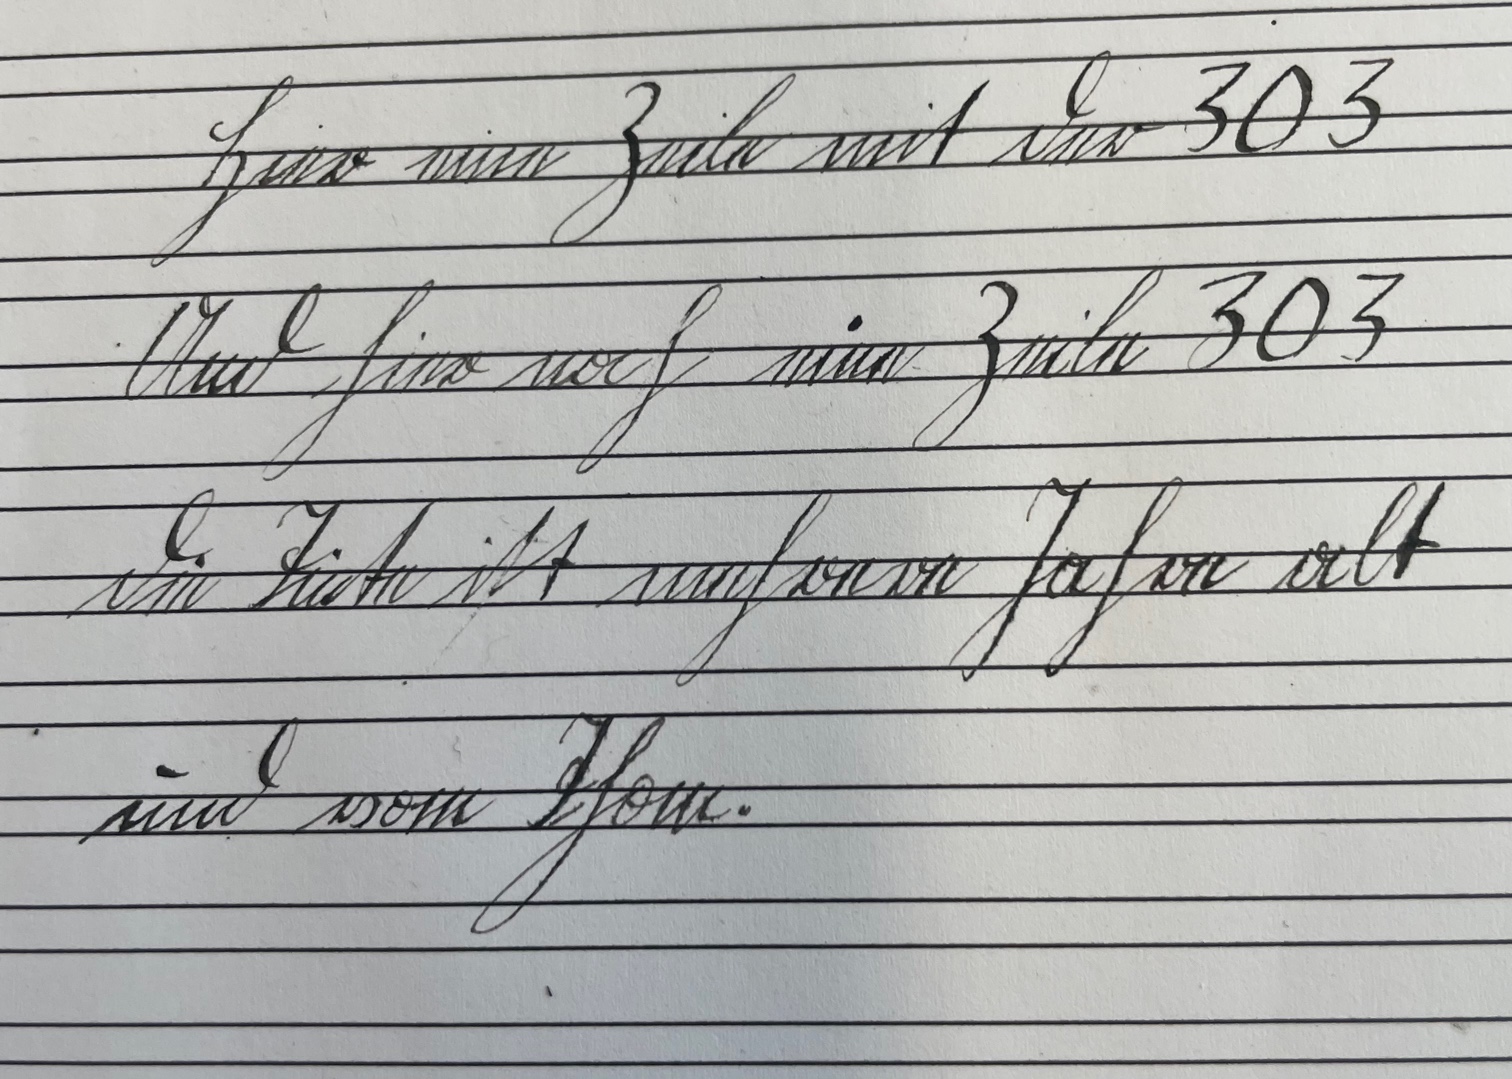 Hier eine Zeile mit der 303
Und hier noch eine Zeile 303
die Tinte ist mehrere Jahre alt
und vom Thom.